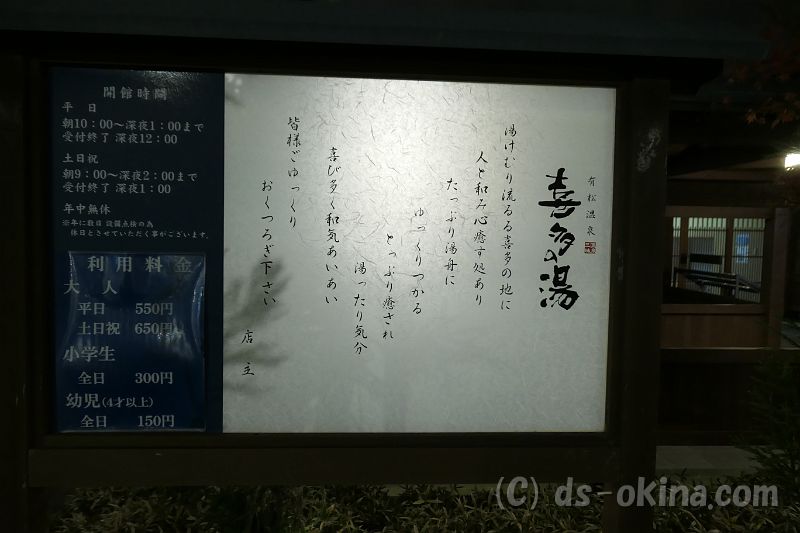 開館時間
平　日
朝10：00～深夜1：00まで
受付終了 深夜12：00
土日祝
朝9：00～深夜2：00まで
受付終了 深夜1：00
年中無休
※年に数日 設備点検の為
休日とさせていただく事がございます。
利用料金
大　人
平日　550円
土日祝　650円
小学生
全日　300円
幼児(4才以上)
全日　150円
有松温泉
喜多の湯
湯けむり流るる喜多の地に
人と和み心癒す処あり
たっぷり湯舟に
ゆっくりつかる
とっぷり癒され
湯ったり気分
喜び多く和気あいあい
皆様ごゆっくり
おくつろぎ下さい
店　主
(C) ds-okina.com